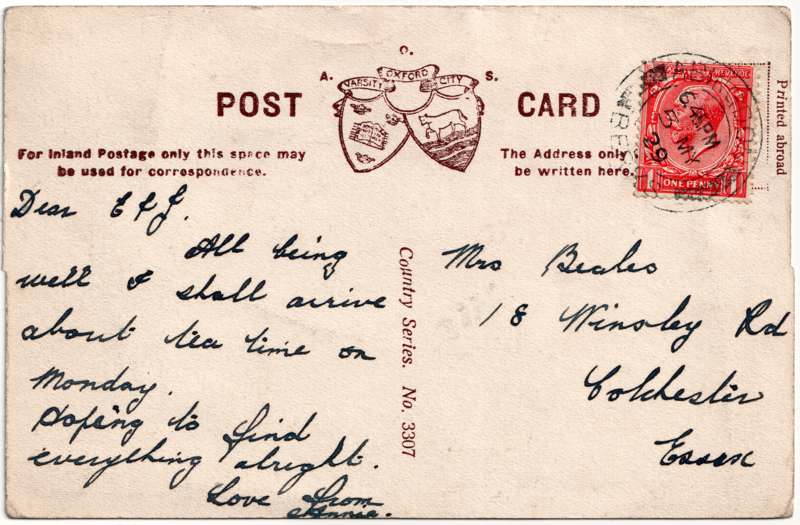 O.
A. VARSITY OXFORD CITY S.
POST CARD
For Inland Postage only this space may
be used for correspondence.
The Address only
be written here.
Printed abroad
6 PM
5 MY
29
ONE PENNY
Dear E & J.
All being
well I shall arrive
about tea time on
Monday.
Hoping to find
everything alright.
Love from
Annie.
Country Series. No. 3307
Mrs Beales
18 Winsley Rd
Colchester
Essex